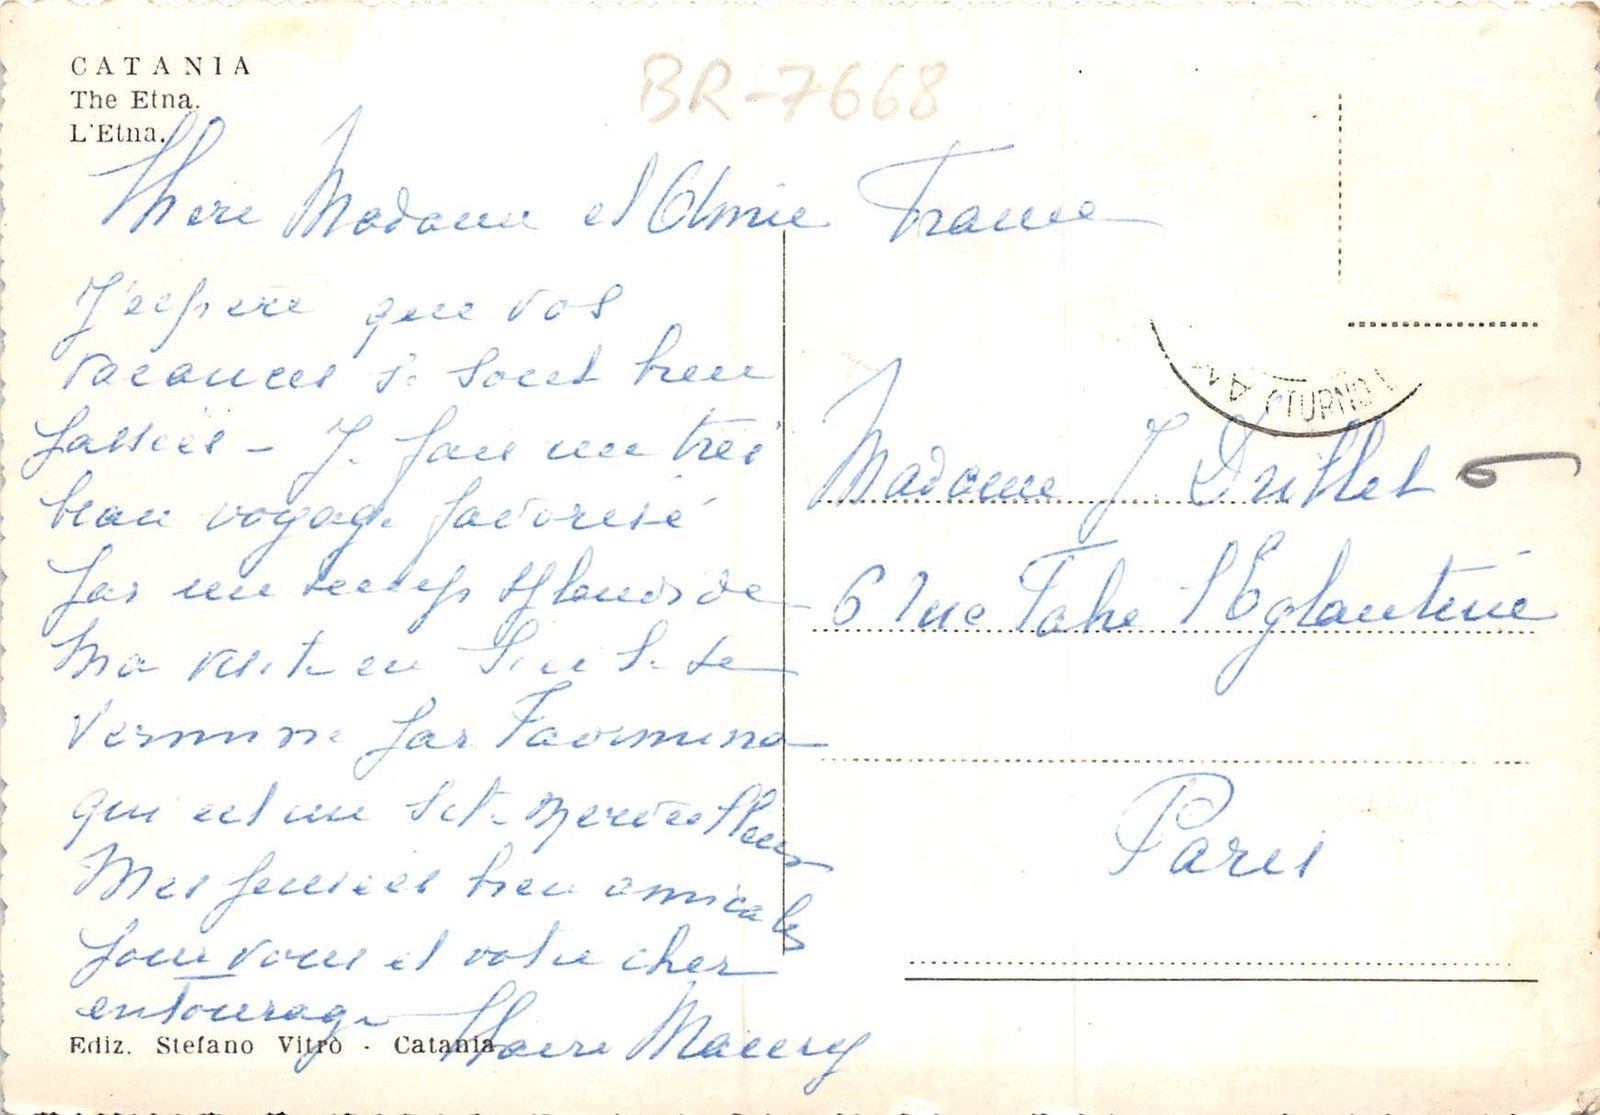 CATANIA
The Etna.
L'Etna.
BR-7668
Chère Madame et Amie France
J'espère que vos
vacances se sont bien
passées - Je fais un très
beau voyage favorisé
par un temps splendide
Ma visite en Sicile se
termine par Taormina
qui est un site merveilleux
Mes pensées bien amicales
pour vous et votre cher
entourage
Ediz. Stefano Vitrò - Catania
DIURNO
Madame J. Drillet
6 rue Fabre l'Eglantine
Paris